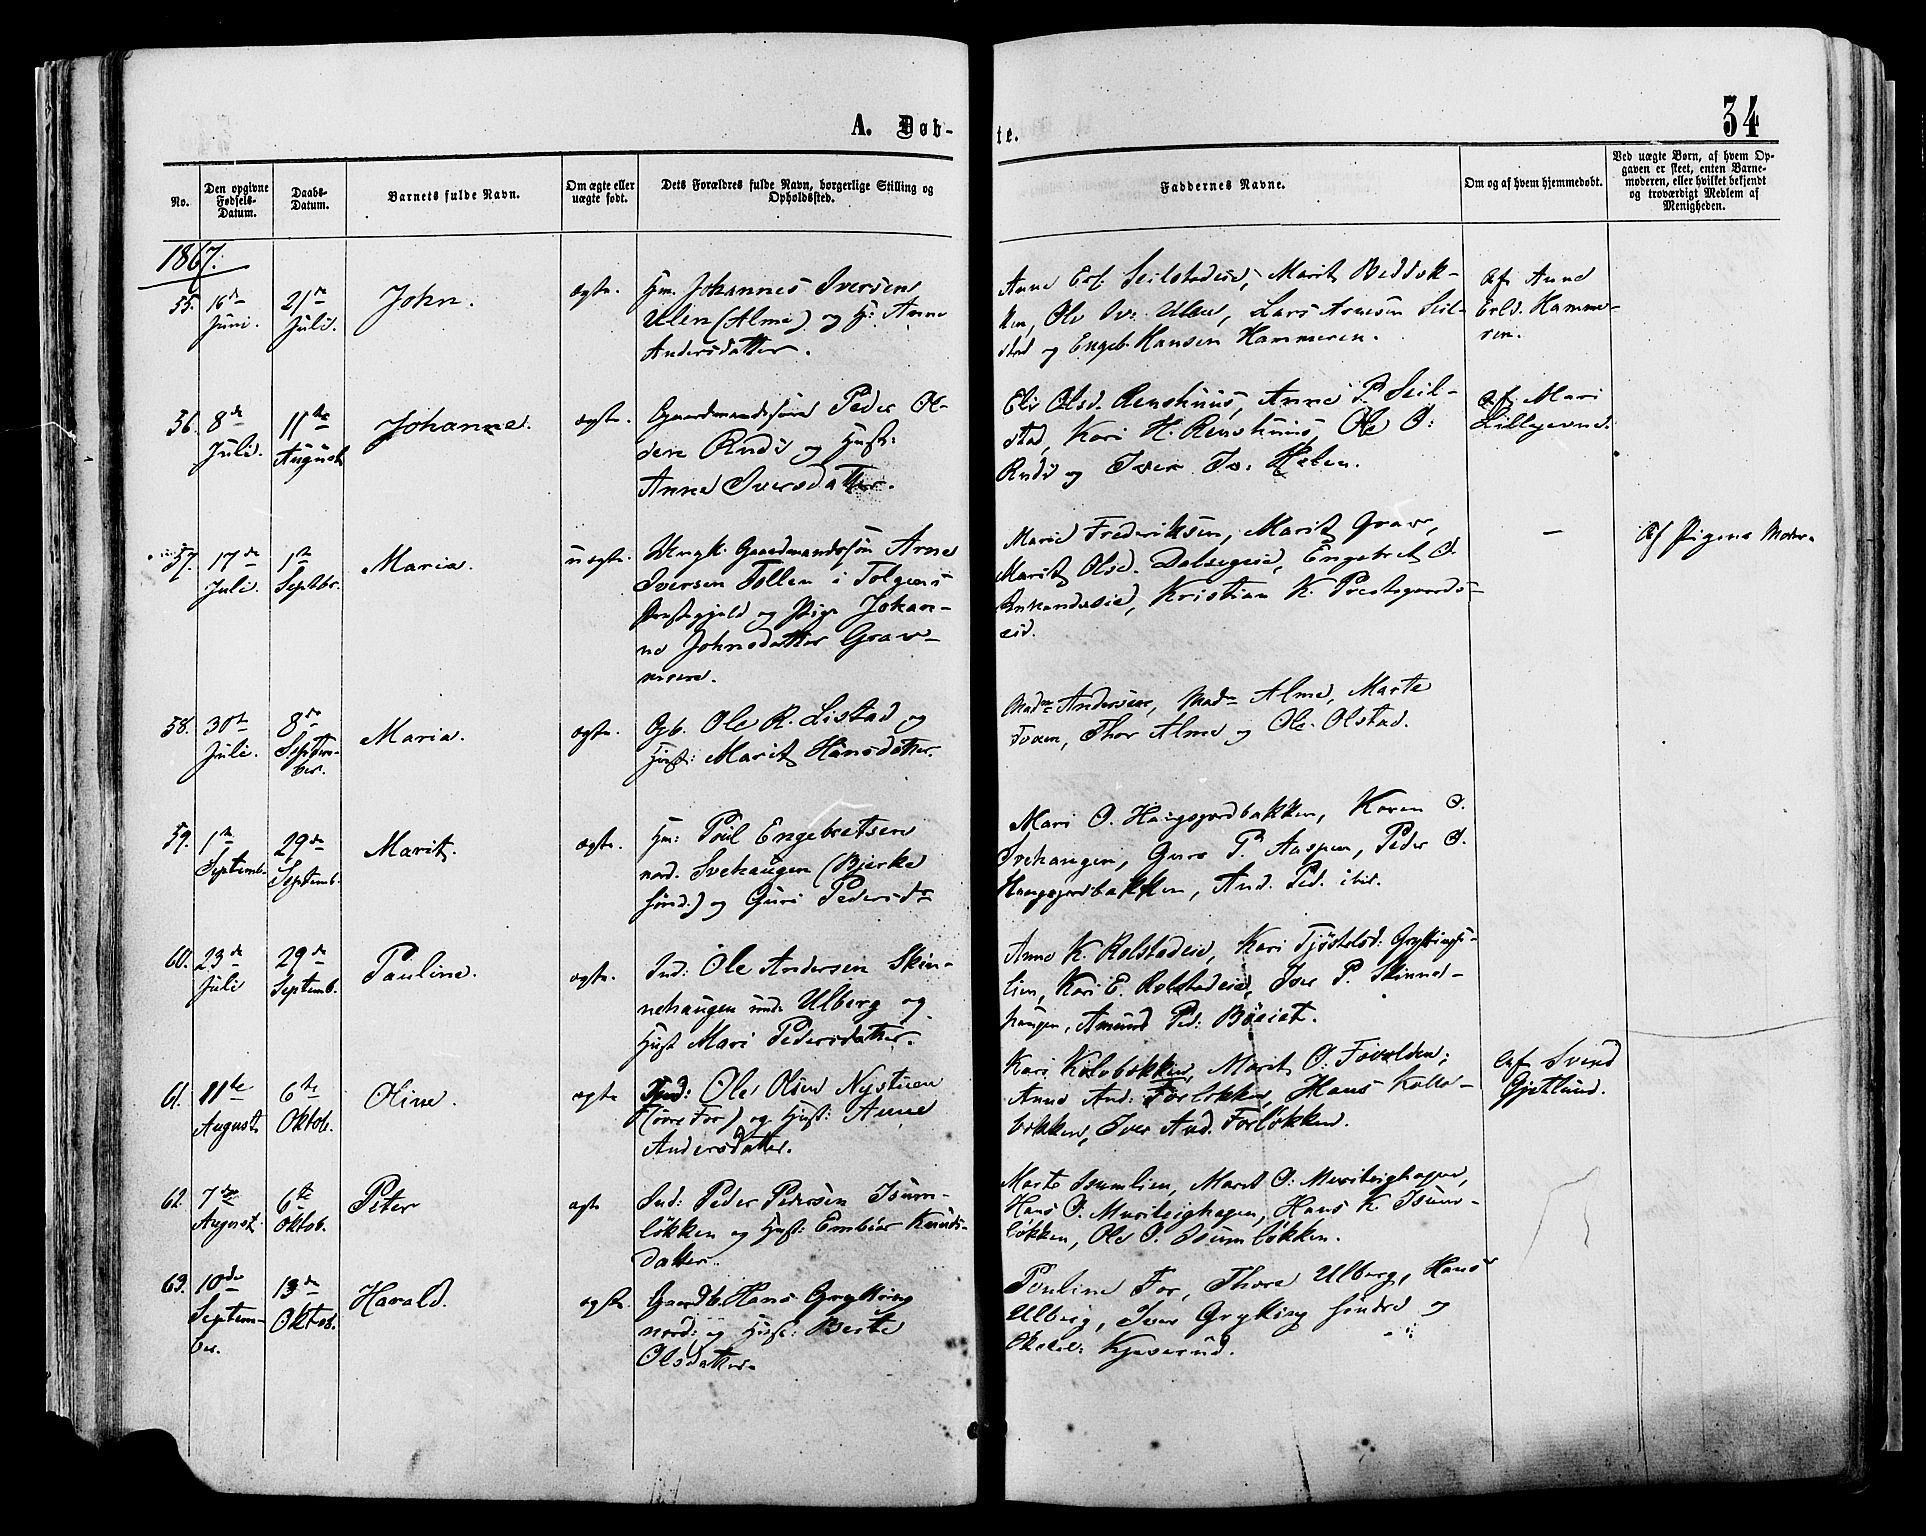 A. Døb-
te.
34
No.
Den opgivne Fødsels-Datum.
Daabs-Datum.
Barnets fulde Navn.
Om ægte eller uægte født.
Dets Forældres fulde Navn, borgerlige Stilling og Opholdssted.
Faddernes Navne.
Om og af hvem hjemmedøbt.
Ved uægte Børn, af hvem Op-
gaven er skeet, enten Barne-
moderen, eller hvilket bekjendt
og troværdigt Medlem af
Menigheden.
1867.
55. 16de Juni. 21de Juli. John. ægte.
Hm. Johannes Iversen
Ulen (Alme) og H: Anne
Andersdatter.
Anne Erl. Seilstadeie, Marit Beddok-
ken, Ole Iv. Ulen, Lars Arnesen Seil-
stad og Engeb. Hansen Hammeren.
Af Anne
Erld. Hamme-
ren.
56. 8de Juli. 11te August Johanne. ægte.
Gaardmandssøn Peder Ol-
sen Rudi og Hust:
Anne Iversdatter.
Eli Olsd. Renshuus, Anne P. Seil-
stad, Kari H. Renshuus, Ole O:
Rudi og Iver Iv:
Af Mari
57. 17de Juli. 1te Septbr. Maria. uægte.
Ungk. Gaardmandssøn Arne
Iversen Tollen i Tolgens
Præstegjeld og Pige Johan-
ne Johnsdatter Grav-
Marie Frederiksen, Marit Grave,
Marit Olsd. Dalsegeie, Engebret O.
Kristian K. Prestegaards-
eid.
–
Af Pigens Moder
58. 30te Juli. 8de Septem-
ber. Maria. ægte.
Gb. Ole R. Listad og
Hust: Marit Hansdatter.
Madm Andersen, Madm Alme, Marte
Foxen, Thor Alme og Ole Olstad.
59. 1te Septemb. 29de Septemb. Marit. ægte.
Hm: Poul Engebretsen
nord. Svehaugen (Bjerke
sønd.) og Guri Pedersdr
Mari O. Haugsgardbakken, Karen O.
Svehaugen, Guro P. Aaspen, Peder O.
Haugsgardbakken, And. Ped. ibid.
60. 23de Juli 29de Septemb. Pauline. ægte.
Ind: Ole Andersen Skin-
nehaugen und. Ulberg og
Hust Mari Pedersdatter.
Anne K. Rolstadeie, Kari Tjøstelsd: Gryttings-
lien, Kari E. Rolstadeie, Iver P. Skinne-
haugen, Amund Ped:
61. 11te August 6te Oktob. Oline. ægte
Ind: Ole Olsen Nystuen
(øvre For) og Hust: Anne
Andersdatter.
Kari Kolobakken, Marit O:
Anne And: Forløkken, Hans Kolo-
bakken, Iver And. Forløkken.
Af Svend
Gjetlund.
62. 7de August. 6te Oktob. Peter ægte
Ind: Peder Pedersen Isum-
løkken og Hust: Embiør Knuds-
datter.
Marte Isumlien, Marit O: Musdvighagen,
Hans O. Musdvighagen, Hans K. Isum-
løkken, Ole O. Isumløkken.
63. 10de Septem-
ber. 13de Oktob. Harald. ægte.
Gaardb. Hans Grytting
nord: og Hust: Berte
Olsdatter
Pauline For, Thore Ulberg, Hans
Ulberg, Iver Grytting søndre og
Kjæserud.